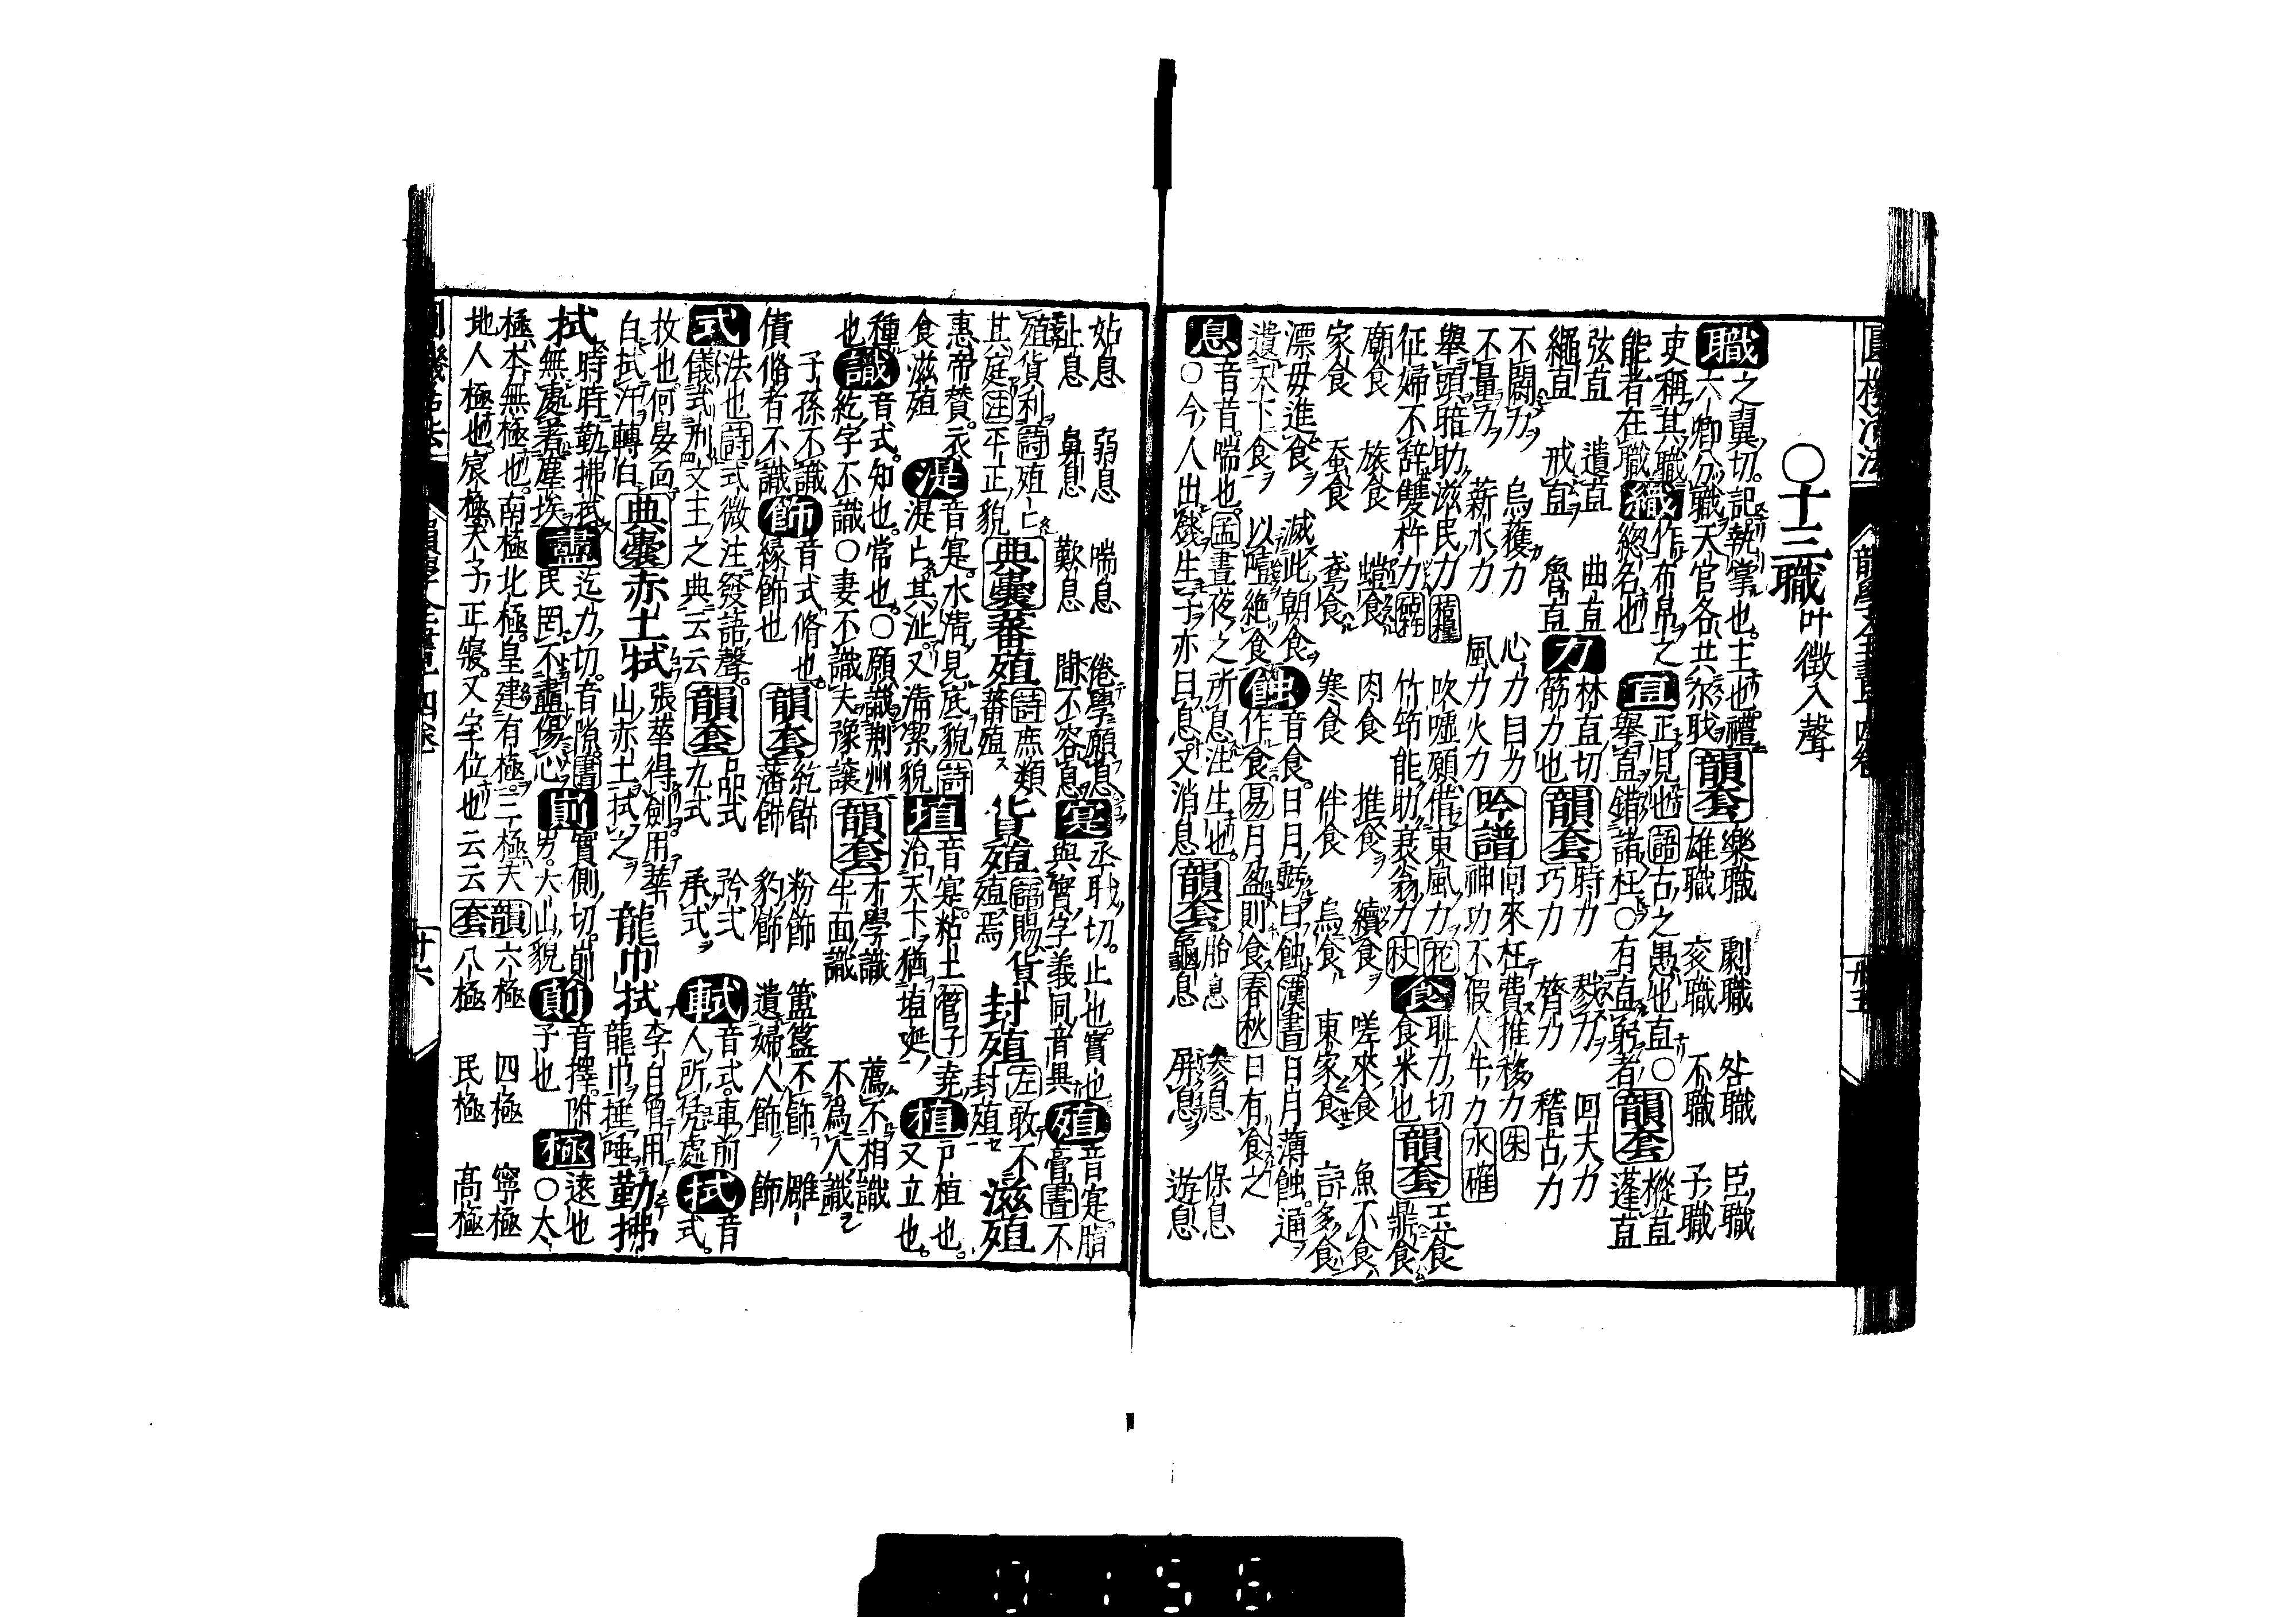 ○十三職 叶徵入聲
職 之翼切。記執掌也。主也。禮
六卿分職天官各共尔職 韻套 樂職 劇職 咎職 臣職
雄職 亥職 不職 子職
吏稱其職
能者在職 織 作布帛之
總名也 直 正見也 語 古之愚也直○
舉直錯諸枉○有直躬者 韻套 樅直
蓬直
弦直 遺直 曲直
繩直 戒直 魯直 力 林直切
筋力也 韻套 時力 戮力 回天力
巧力 膂力 稽古力
不鬪力 烏獲力 心力 目力
不量力 薪水力 風力 火力 吟譜 向來枉費推移力 朱
神功不假人牛力 水碓
舉頭聸助滋民力 吹噓願借東風力
征婦不辭雙杵力 竹笻能助衰翁力 杖 食 耻力切
食米也 韻套 玉食
鼎食
廟食 族食 蝗食 肉食 推食 續食 嗟來食 魚不食
家食 蚕食 鳶食 寒食 伴食 烏食 東家食 多食
漂母進食 滅此朝食 蝕 音食。日月虧曰蝕 漢書 日月薄蝕。通
遺天下食 以噎絶食 作食 易 月盈則食 春秋 日有食之
息 音昔。喘也。孟 晝夜之所息注生也。
○今人出錢生子亦曰息又消息 韻套 胎息 參息 保息
龜息 屏息 遊息
姑息 弱息 喘息 倦學願息
趾息 鼻息 歎息 間不容息 寔 丞職切。止也。實也
與實字義同音異 殖 音寔。脂
膏 書 不
殖貨利 詩 殖ヒ
其庭 注 平正貌 典囊 蕃殖 詩 庶類
蕃殖 貨殖 語 賜貨
殖焉 封殖 左 敢不
封殖 滋殖
惠帝贊。衣
食滋殖 湜 音寔。水清見底貌 詩
湜ヒ其沚。又清潔貌 埴 音寔。粘土 管子 堯
治天下猶埴埏 植 戶植也。
又立也。
種
也 識 音式。知也。常也。○願識荆州
紇字不識○妻不識夫豫讓 韻套 才學識 薦不相識
牛面識 不爲人識
子孫不識
債脩者不識 飾 音式脩也。
緣飾也 韻套 紇飾 粉飾 簠簋不飾 雕飾
藩飾 豹飾 遺婦人飾
式 法也 詩 式微注發語聲。
儀式刑文王之典云云 韻套 品式 矜式
九式 承式 軾 音式。車前
人所凭處 拭 音
式。
抆也。何晏面
白拭汗轉白 典囊 赤土拭 張華得劍用華
山赤土拭之 龍巾拭 李白嘗用
龍巾捶唾 勤拂
拭 時時勤拂拭
無處著塵埃 衋 迄力切。音隙 書
民罔不衋傷心 崱 實側切。崱
屴。大山貌 音擇。附
子也 極 遠也
○太
極本無極也。南極北極。皇建有極。三極天
地人極也。宸極天子正寢。又字位也云云 韻套 六極 四極 寧極
八極 民極 高極